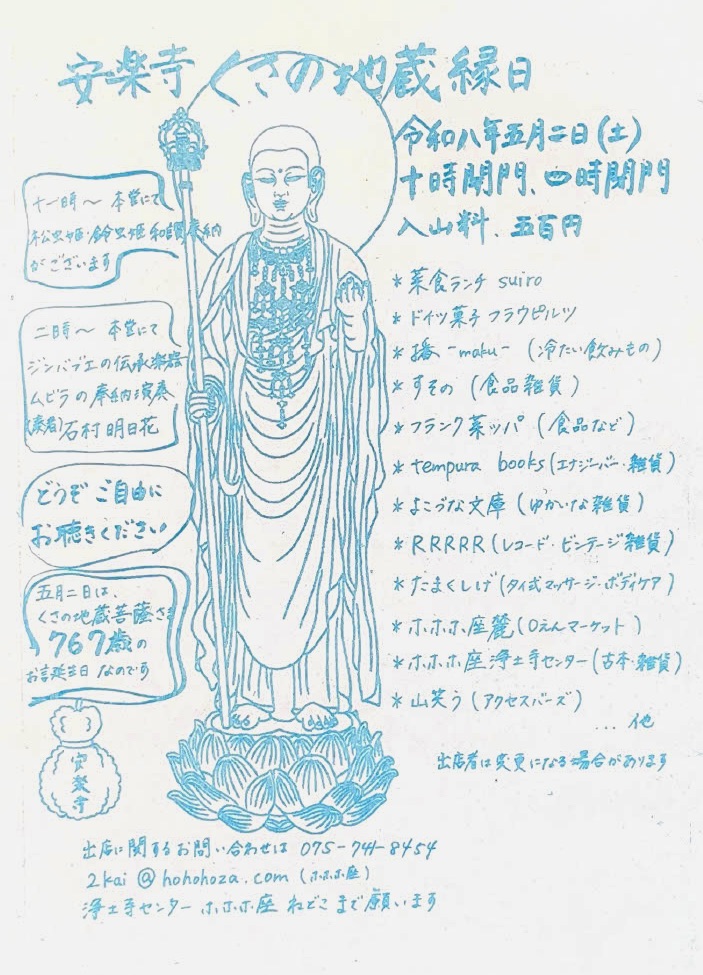 安楽寺 くさの地蔵縁日
令和八年五月二日(土)
十時開門、四時閉門
入山料、五百円
十一時〜 本堂にて
松虫姫・鈴虫姫 和讃奉納
がございます
二時〜 本堂にて
ジンバブエの伝承楽器
ムビラの奉納演奏
(奏者)石村明日花
どうぞご自由に
お聴きください
五月二日は、
くさの地蔵菩薩さま
767歳の
お誕生日なのです
安楽寺
*菜食ランチ suiro
*ドイツ菓子 フラウピルツ
*播-maku-(冷たい飲みもの)
*すその(食品雑貨)
*フランク菜ッパ(食品など)
*tempura books(エナジーバー・雑貨)
*よこづな文庫(ゆかいな雑貨)
*RRRRR(レコード・ビンテージ雑貨)
*たまくしげ(タイ式マッサージ・ボディケア)
*ホホホ座麓(0えんマーケット)
*ホホホ座浄土寺センター(古本・雑貨)
*山笑う(アクセスバーズ)
...他
出店者は変更になる場合があります
出店に関するお問い合わせは 075-741-8454
2kai@hohohoza.com(ホホホ座)
浄土寺センター ホホホ座 ねどこまで願います